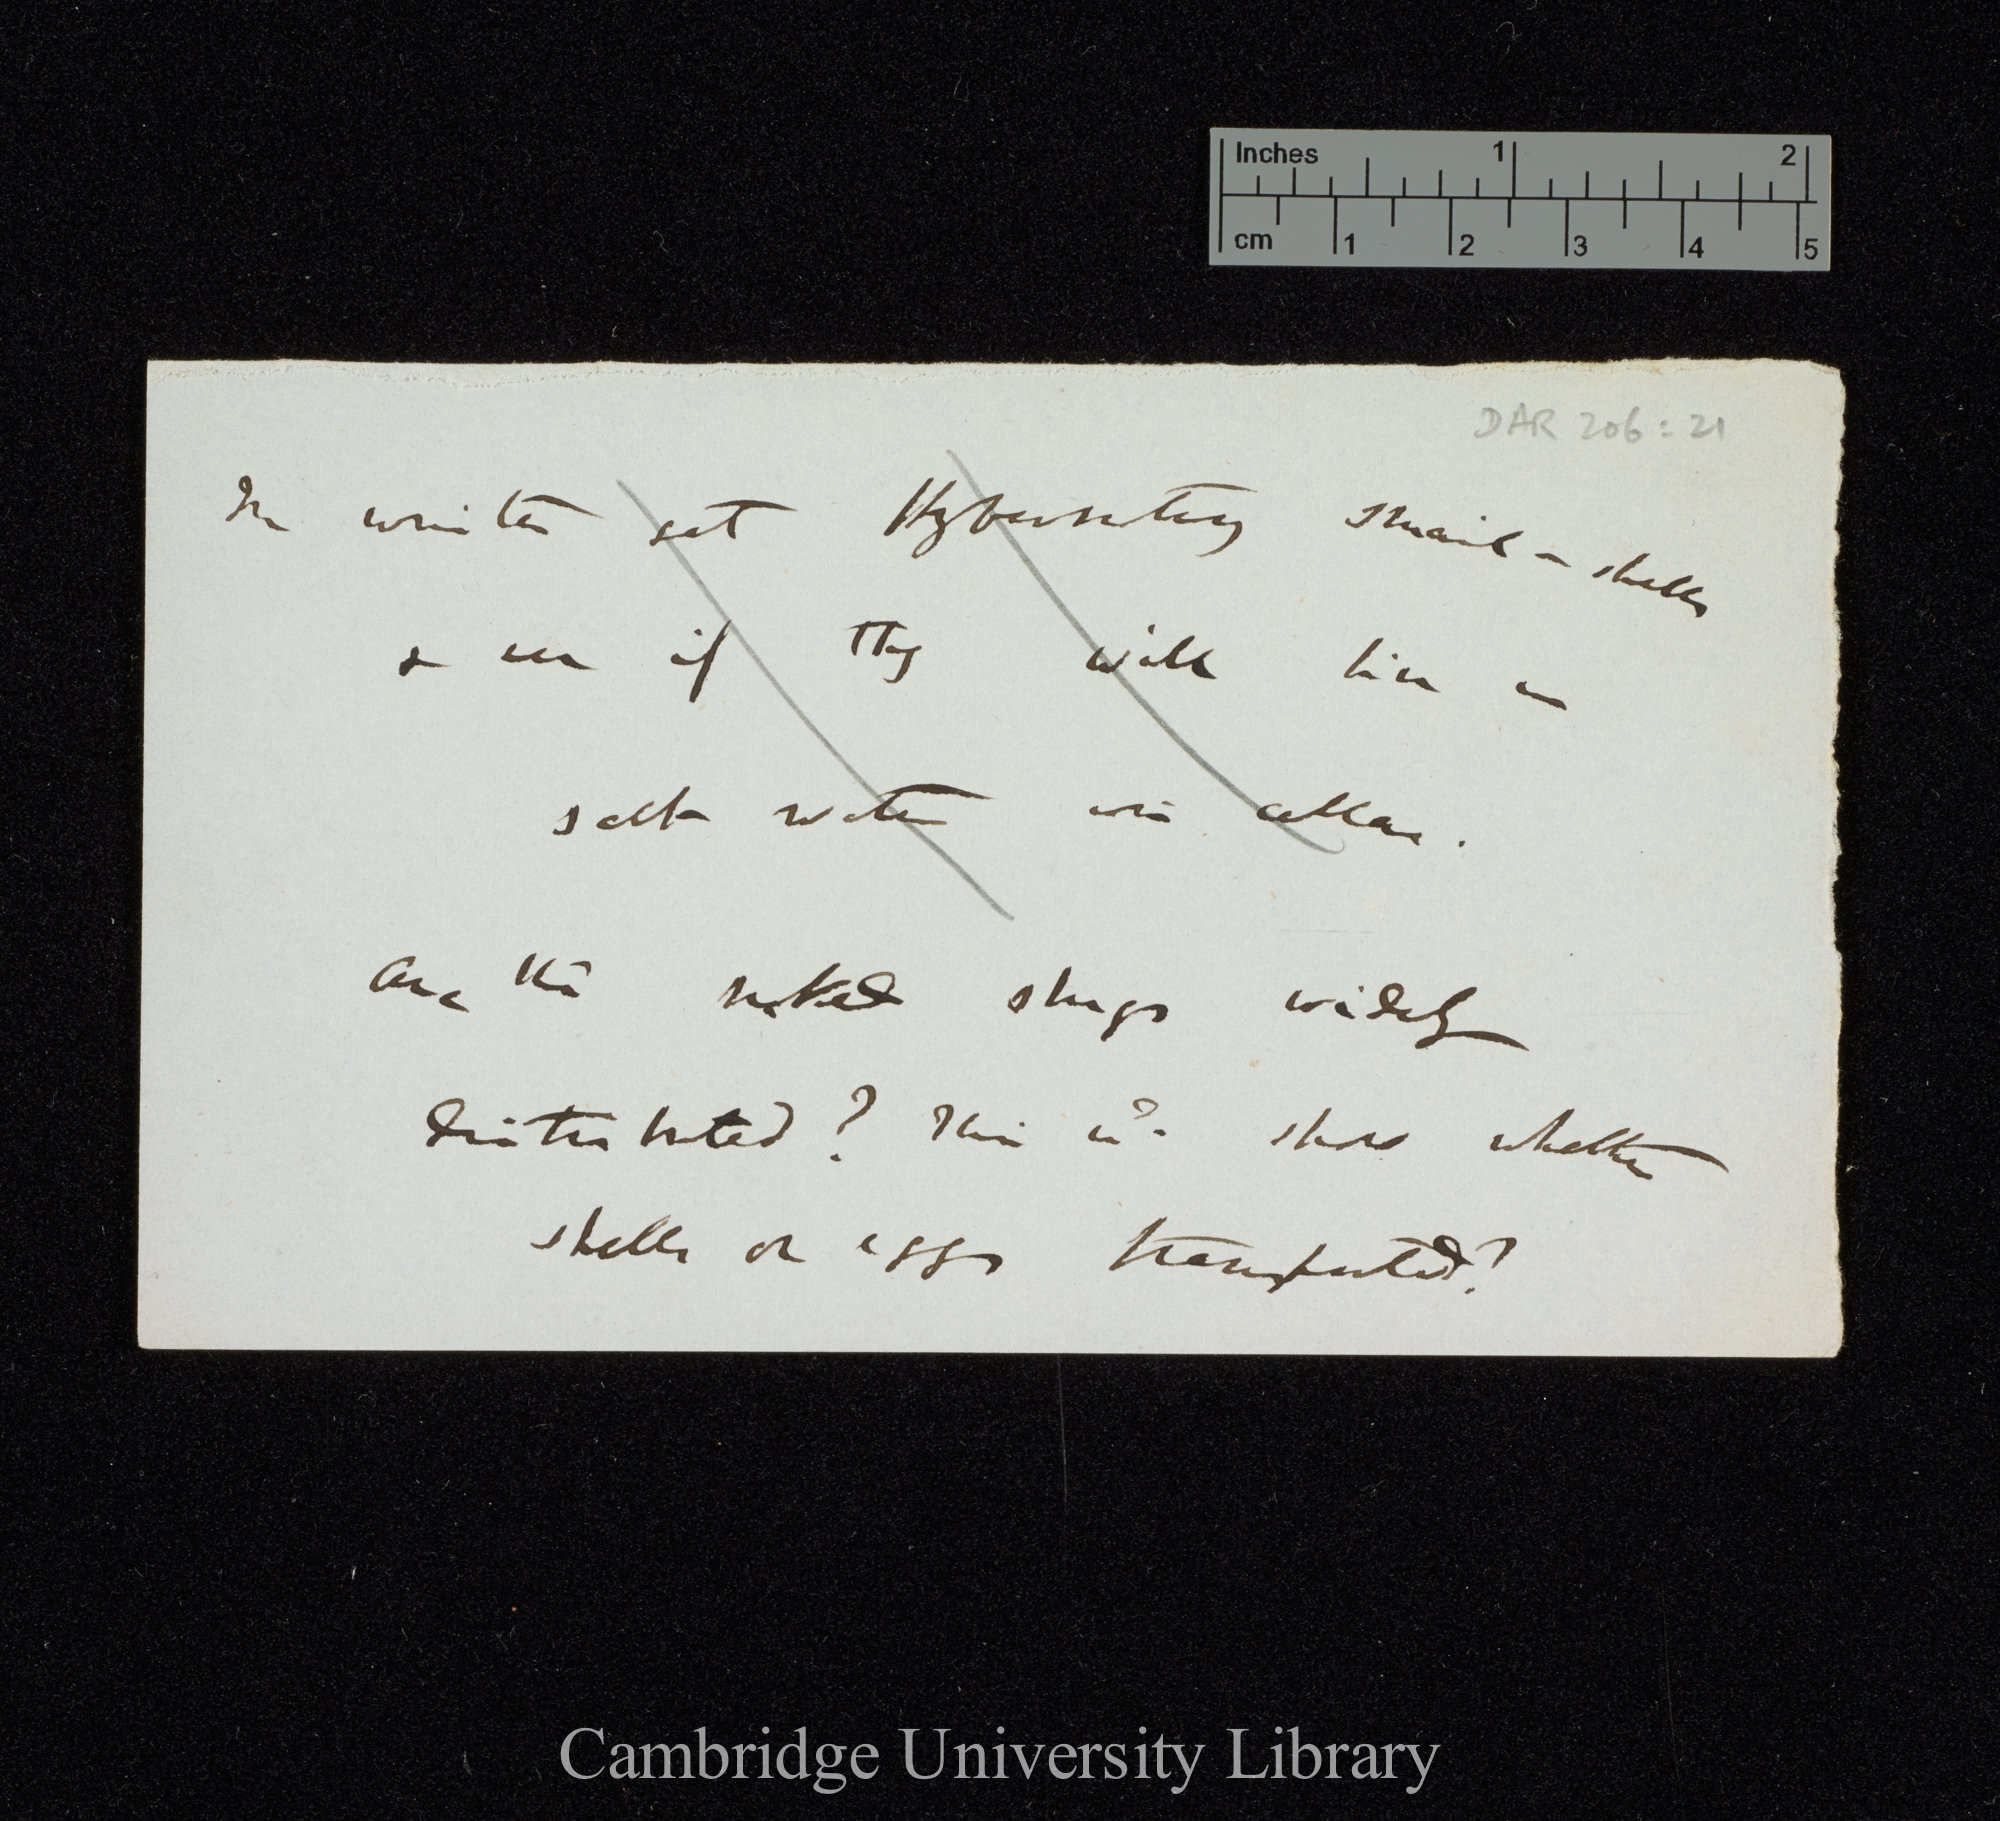 Inches 1 2
cm 1 2 3 4 5
DAR 206:21
In winter get Hybernating snail-shells
& see if they will live in
salt water in cellar.
Are the naked slugs widely
distributed? This wd. show whether
shells or eggs transported?
Cambridge University Library